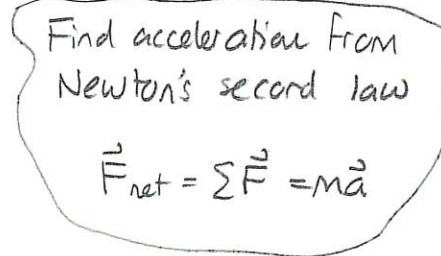 Find acceleration from
Newton's second law
F⃗net = ΣF⃗ = ma⃗